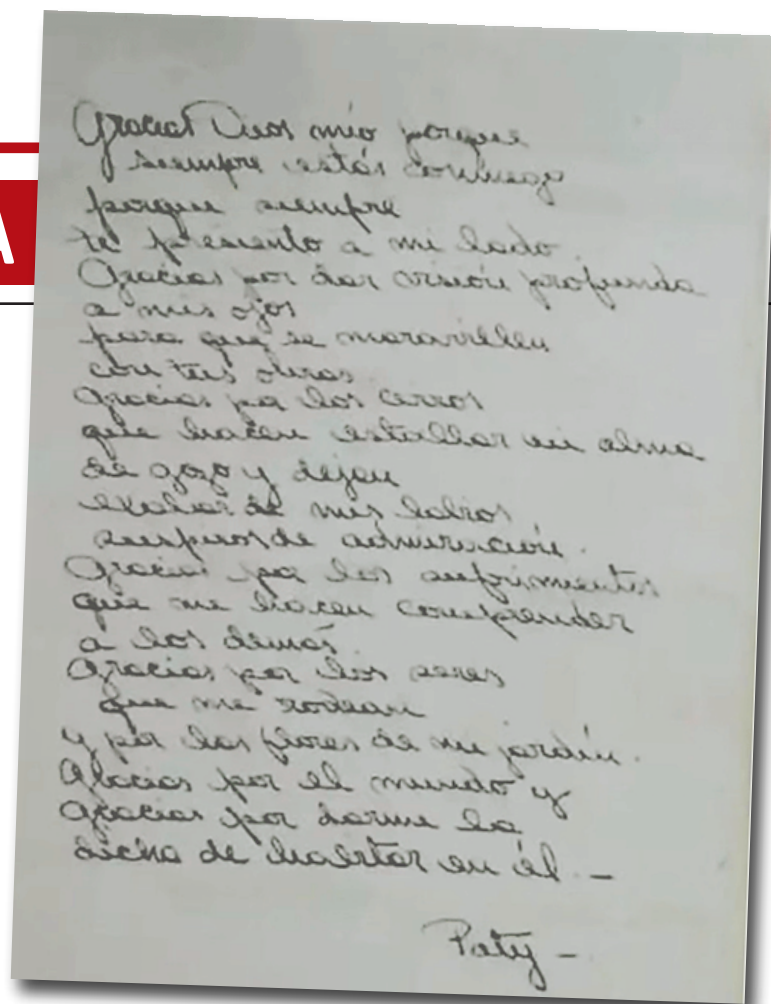 A
Gracias Dios mío porque
siempre estás conmigo
porque siempre
te presiento a mi lado.
Gracias por dar visión profunda
a mis ojos
para que se maravillen
con tus obras
Gracias por los cerros
que hacen estallar mi alma
de gozo y dejan
exhalar de mis labios
suspiros de admiración.
Gracias por los sufrimientos
que me hacen comprender
a los demás.
Gracias por los seres
que me rodean
y por las flores de mi jardín.
Gracias por el mundo y
Gracias por darme la
dicha de habitar en él. –
Paty –